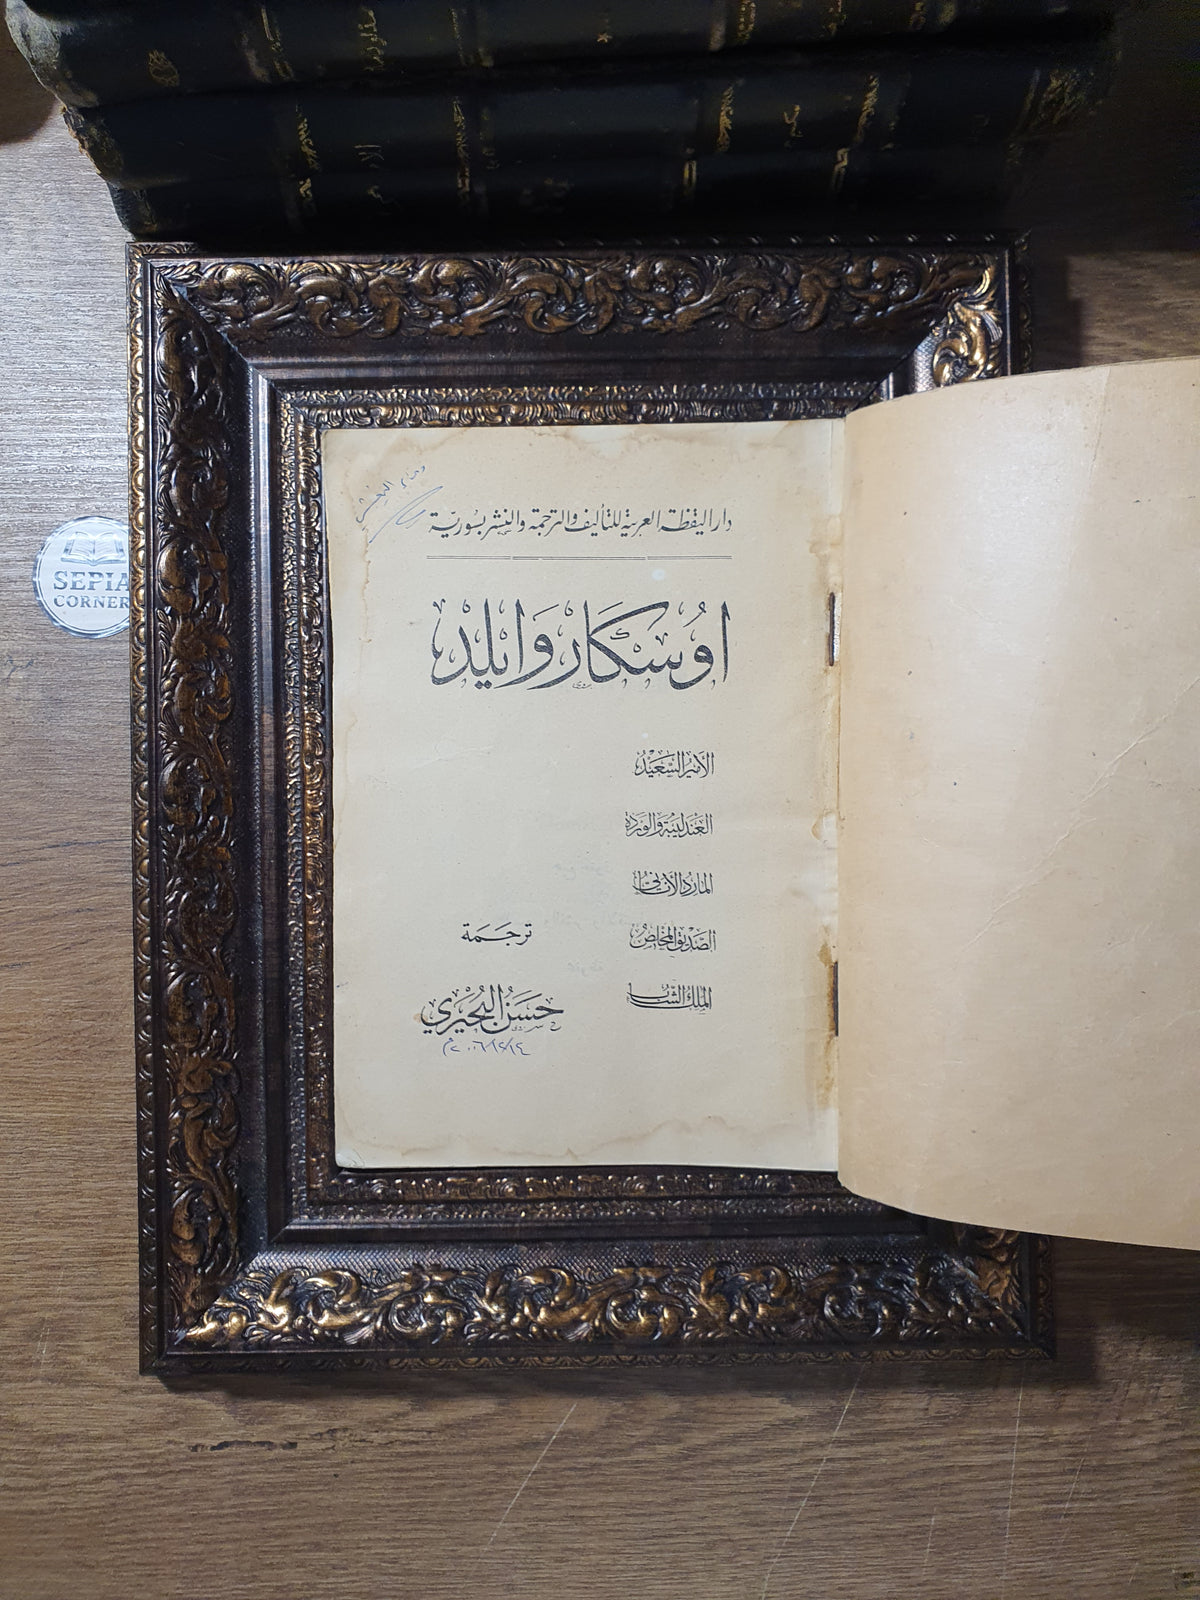 دار اليقظة العربية للتأليف والترجمة والنشر بسورية
اوُسكَار وَايلد
الأمير السَّعِيْدُ
العَندليبَة وَالوَردة
المارد الأناني
الصَّديق المخلصُ
الملك الشاب
ترجَمَة
حسَنُ البُحَيري
SEPIA
CORNER